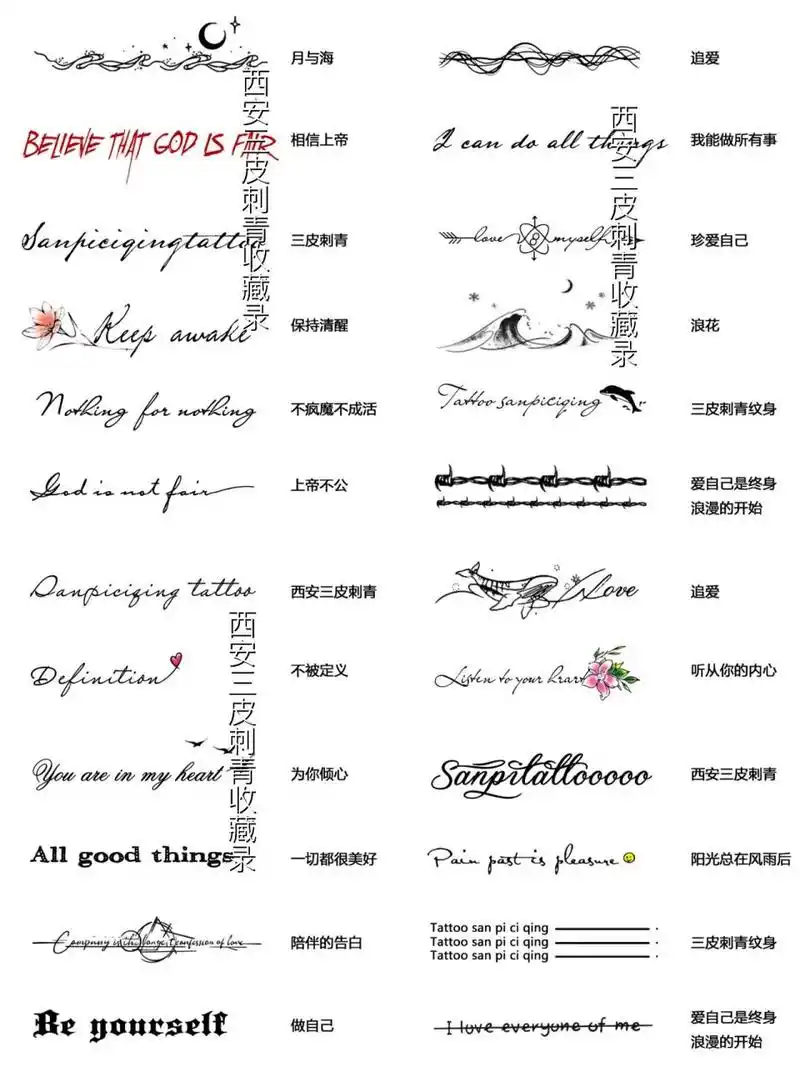 月与海
追爱
BELIEVE THAT GOD IS FAIR
相信上帝
I can do all things
我能做所有事
Sanpiciqingtattoo
三皮刺青
love myself
珍爱自己
Keep awake
保持清醒
浪花
Nothing for nothing
不疯魔不成活
Tattoo sanpiciqing
三皮刺青纹身
God is not fair
上帝不公
爱自己是终身
浪漫的开始
Danpiciqing tattoo
西安三皮刺青
love
追爱
Definition
不被定义
Listen to your heart
听从你的内心
You are in my heart
为你倾心
Sanpitattooooo
西安三皮刺青
All good things
一切都很美好
Pain past is pleasure
阳光总在风雨后
Company is the longest confession of love
陪伴的告白
Tattoo san pi ci qing
Tattoo san pi ci qing
Tattoo san pi ci qing
三皮刺青纹身
Be yourself
做自己
I love everyone of me
爱自己是终身
浪漫的开始
西安三皮刺青收藏录
西安三皮刺青收藏录
西安三皮刺青收藏录